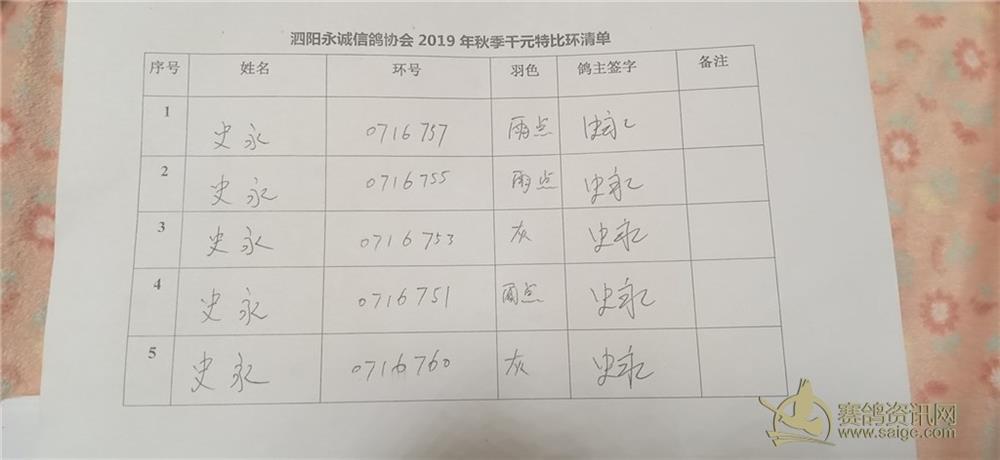 泗阳永诚信鸽协会2019年秋季千元特比环清单
序号 姓名 环号 羽色 鸽主签字 备注
1 史永 0716757 雨点 史永
2 史永 0716755 雨点 史永
3 史永 0716753 灰 史永
4 史永 0716751 雨点 史永
5 史永 0716760 灰 史永
赛鸽资讯网
www.saige.com